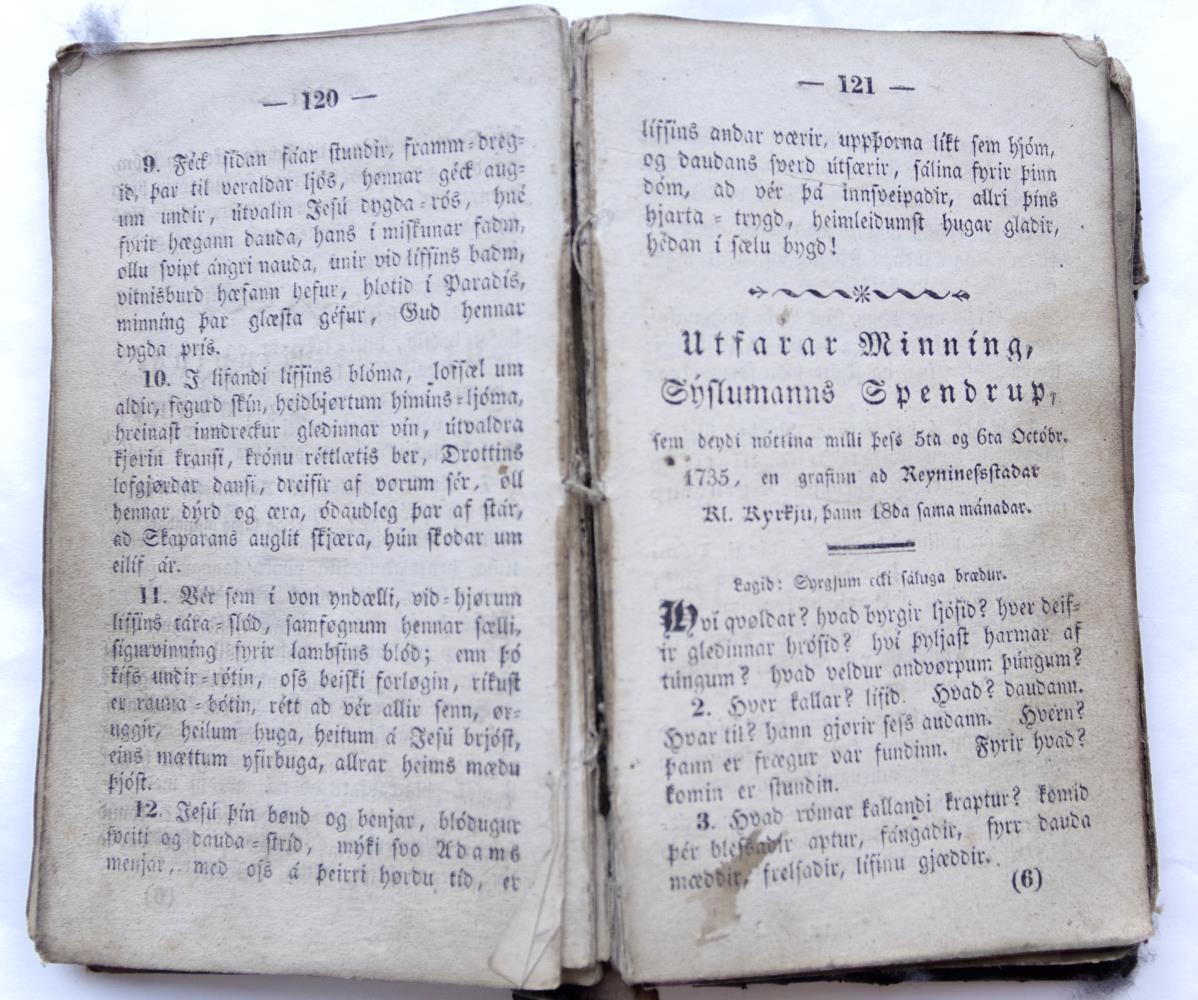 — 120 —
9. Féck sídan fáar stundir, framm-dreg-
id, þar til veraldar ljós, hennar géck aug-
um undir, útvalin Jesú dygda-rós, hné
fyrir hægann dauda, hans í miskunar fadm,
øllu svipt ángri nauda, unir vid lífsins badm,
vitnisburd hæfann hefur, hlotid í Paradís,
minníng þar glæsta géfur, Gud hennar
dygda prís.
10. I lifandi lífsins blóma, lofsæl um
aldir, fegurd skín, heidbjørtum himins-ljóma,
hreinast inndreckur gledinnar vín, útvaldra
kjørin kransi, krónu réttlætis ber, Drottins
lofgjørdar dansi, dreifir af vørum sér, øll
hennar dýrd og æra, ódaudleg þar af stár,
ad Skaparans auglit skjæra, hún skodar um
eilíf ár.
11. Vér sem í von yndælli, vid-hjørum
lífsins tára-slód, samføgnum hennar sælli,
sigurvinníng fyrir lambsins blód; enn þó
kífs undir-rótin, oss beiski forløgin, ríkust
er rauna-bótin, rétt ad vér allir senn, ør-
uggir, heilum huga, heitum á Jesú brjóst,
eins mættum yfirbuga, allrar heims mædu
þjóst.
12. Jesú þín bønd og benjar, blódugur
sveiti og dauda-stríd, mýki svo Adams
menjar, med oss á þeirri hørdu tíd, er
— 121 —
lífsins andar værir, uppþorna líkt sem hjóm,
og daudans sverd útsærir, sálina fyrir þinn
dóm, ad vér þá innsveipadir, allri þíns
hjarta-trygd, heimleidumst hugar gladir,
hédan í sælu bygd!
Utfarar Minníng,
Sýslumanns Spendrup,
sem deydi nóttina milli þess 5ta og 6ta Octóbr.
1735, en grafinn ad Reyninessstadar
Kl. Kyrkju, þann 18da sama mánadar.
Lagid: Syrgjum ecki sáluga brædur.
Hví qvøldar? hvad byrgir ljósid? hver deif-
ir gledinnar hrósid? hví þyljast harmar af
túngum? hvad veldur andvørpum þúngum?
2. Hver kallar? lífid. Hvad? daudann.
Hvar til? hann gjørir sess audann. Hvern?
þann er frægur var fundinn. Fyrir hvad?
komin er stundin.
3. Hvad rómar kallandi kraptur? komid
þér blessadir aptur, fángadir, fyrr dauda
mæddir, frelsadir, lífinu gjæddir.
(6)